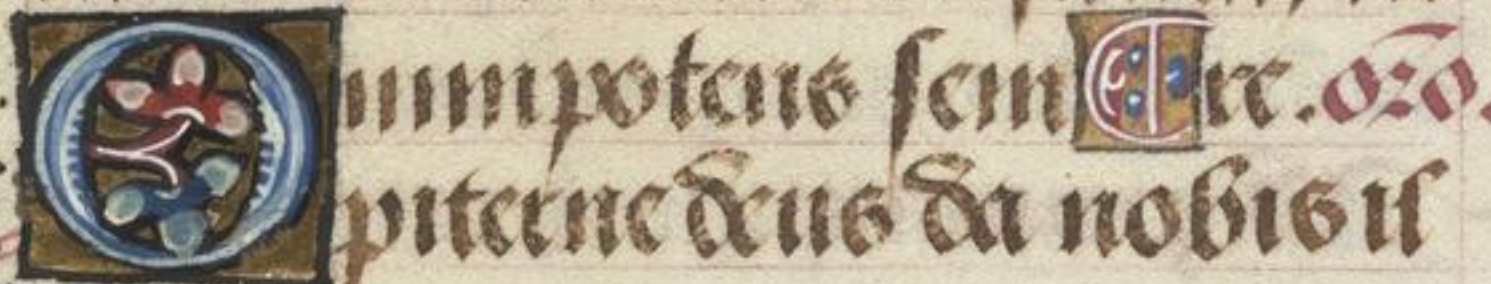 Omnipotens sem oro.
piterne deus da nobis il